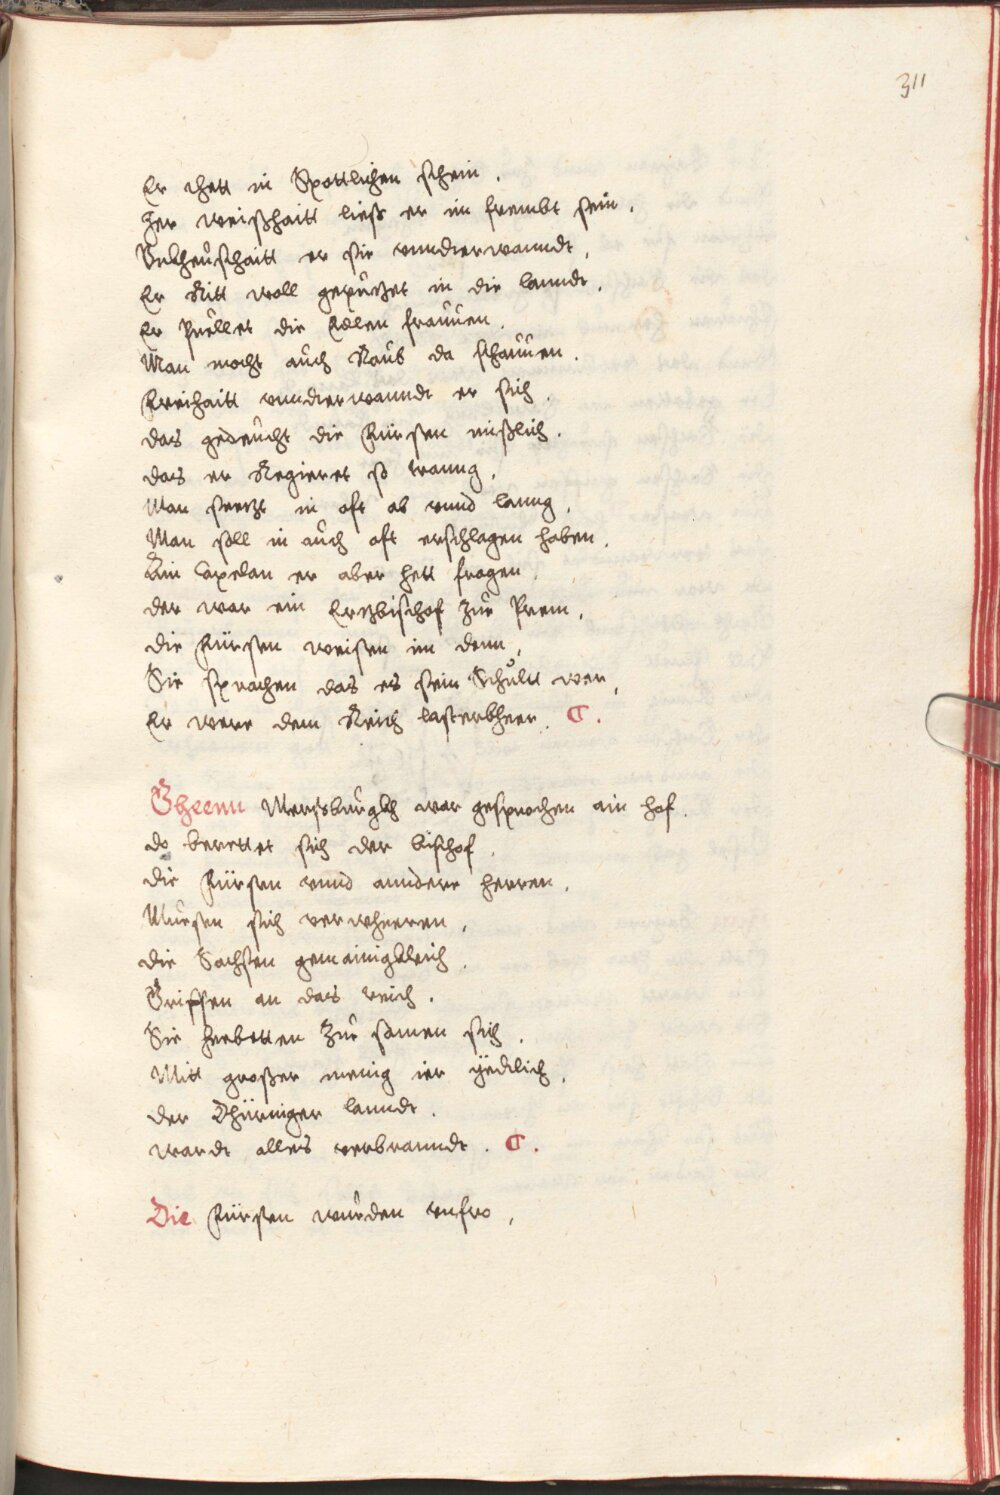 311
Er thett in Spottlichen schein .
Her weißhaitt ließ er im frembt sein .
Unkheuschaitt er sie unnderwanndt ,
Er Ritt woll geputzet in die lanndt .
Er Quellet die Edlen frauuen .
Man mocht auch Raub da schauuen .
Freihaitt unnderwanndt er sich .
das gedeucht die Fürsten mißlich .
das er Regieret so tranng .
Man seetzt in oft ab unnd lanng ,
Man soll in auch oft erschlagen haben .
Ain Capelan er aber hett fragen .
der war ein Ertzbischof zur Prem ,
die Fürsten weisten im denn ,
Sie sprachen das es sein Schuldt wer ,
Er were dem Reich lasterbheer . C .
Gheenn Merßburgkh war gesprochen ain hof .
do berettet sich der bischof .
die Fürsten unnd anndere herren .
Musten sich verwheeren .
die Sachsen gemainigkleich .
Griffen an das reich .
Sie herbotten zur samen sich .
Mitt großer menig ier yedlich .
der Thüringer lanndt .
wardt alles verbranndt . C .
Die Fürsten wurden unfro ,